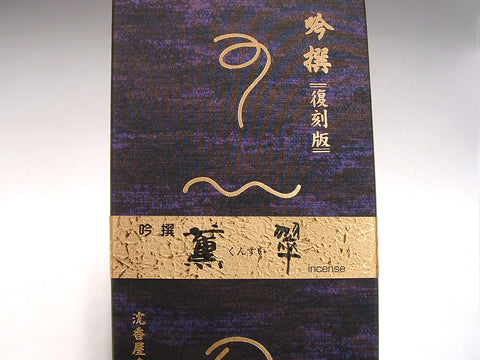 吟撰
復刻版
吟撰
薫翠
くんすい
incense
沈香屋